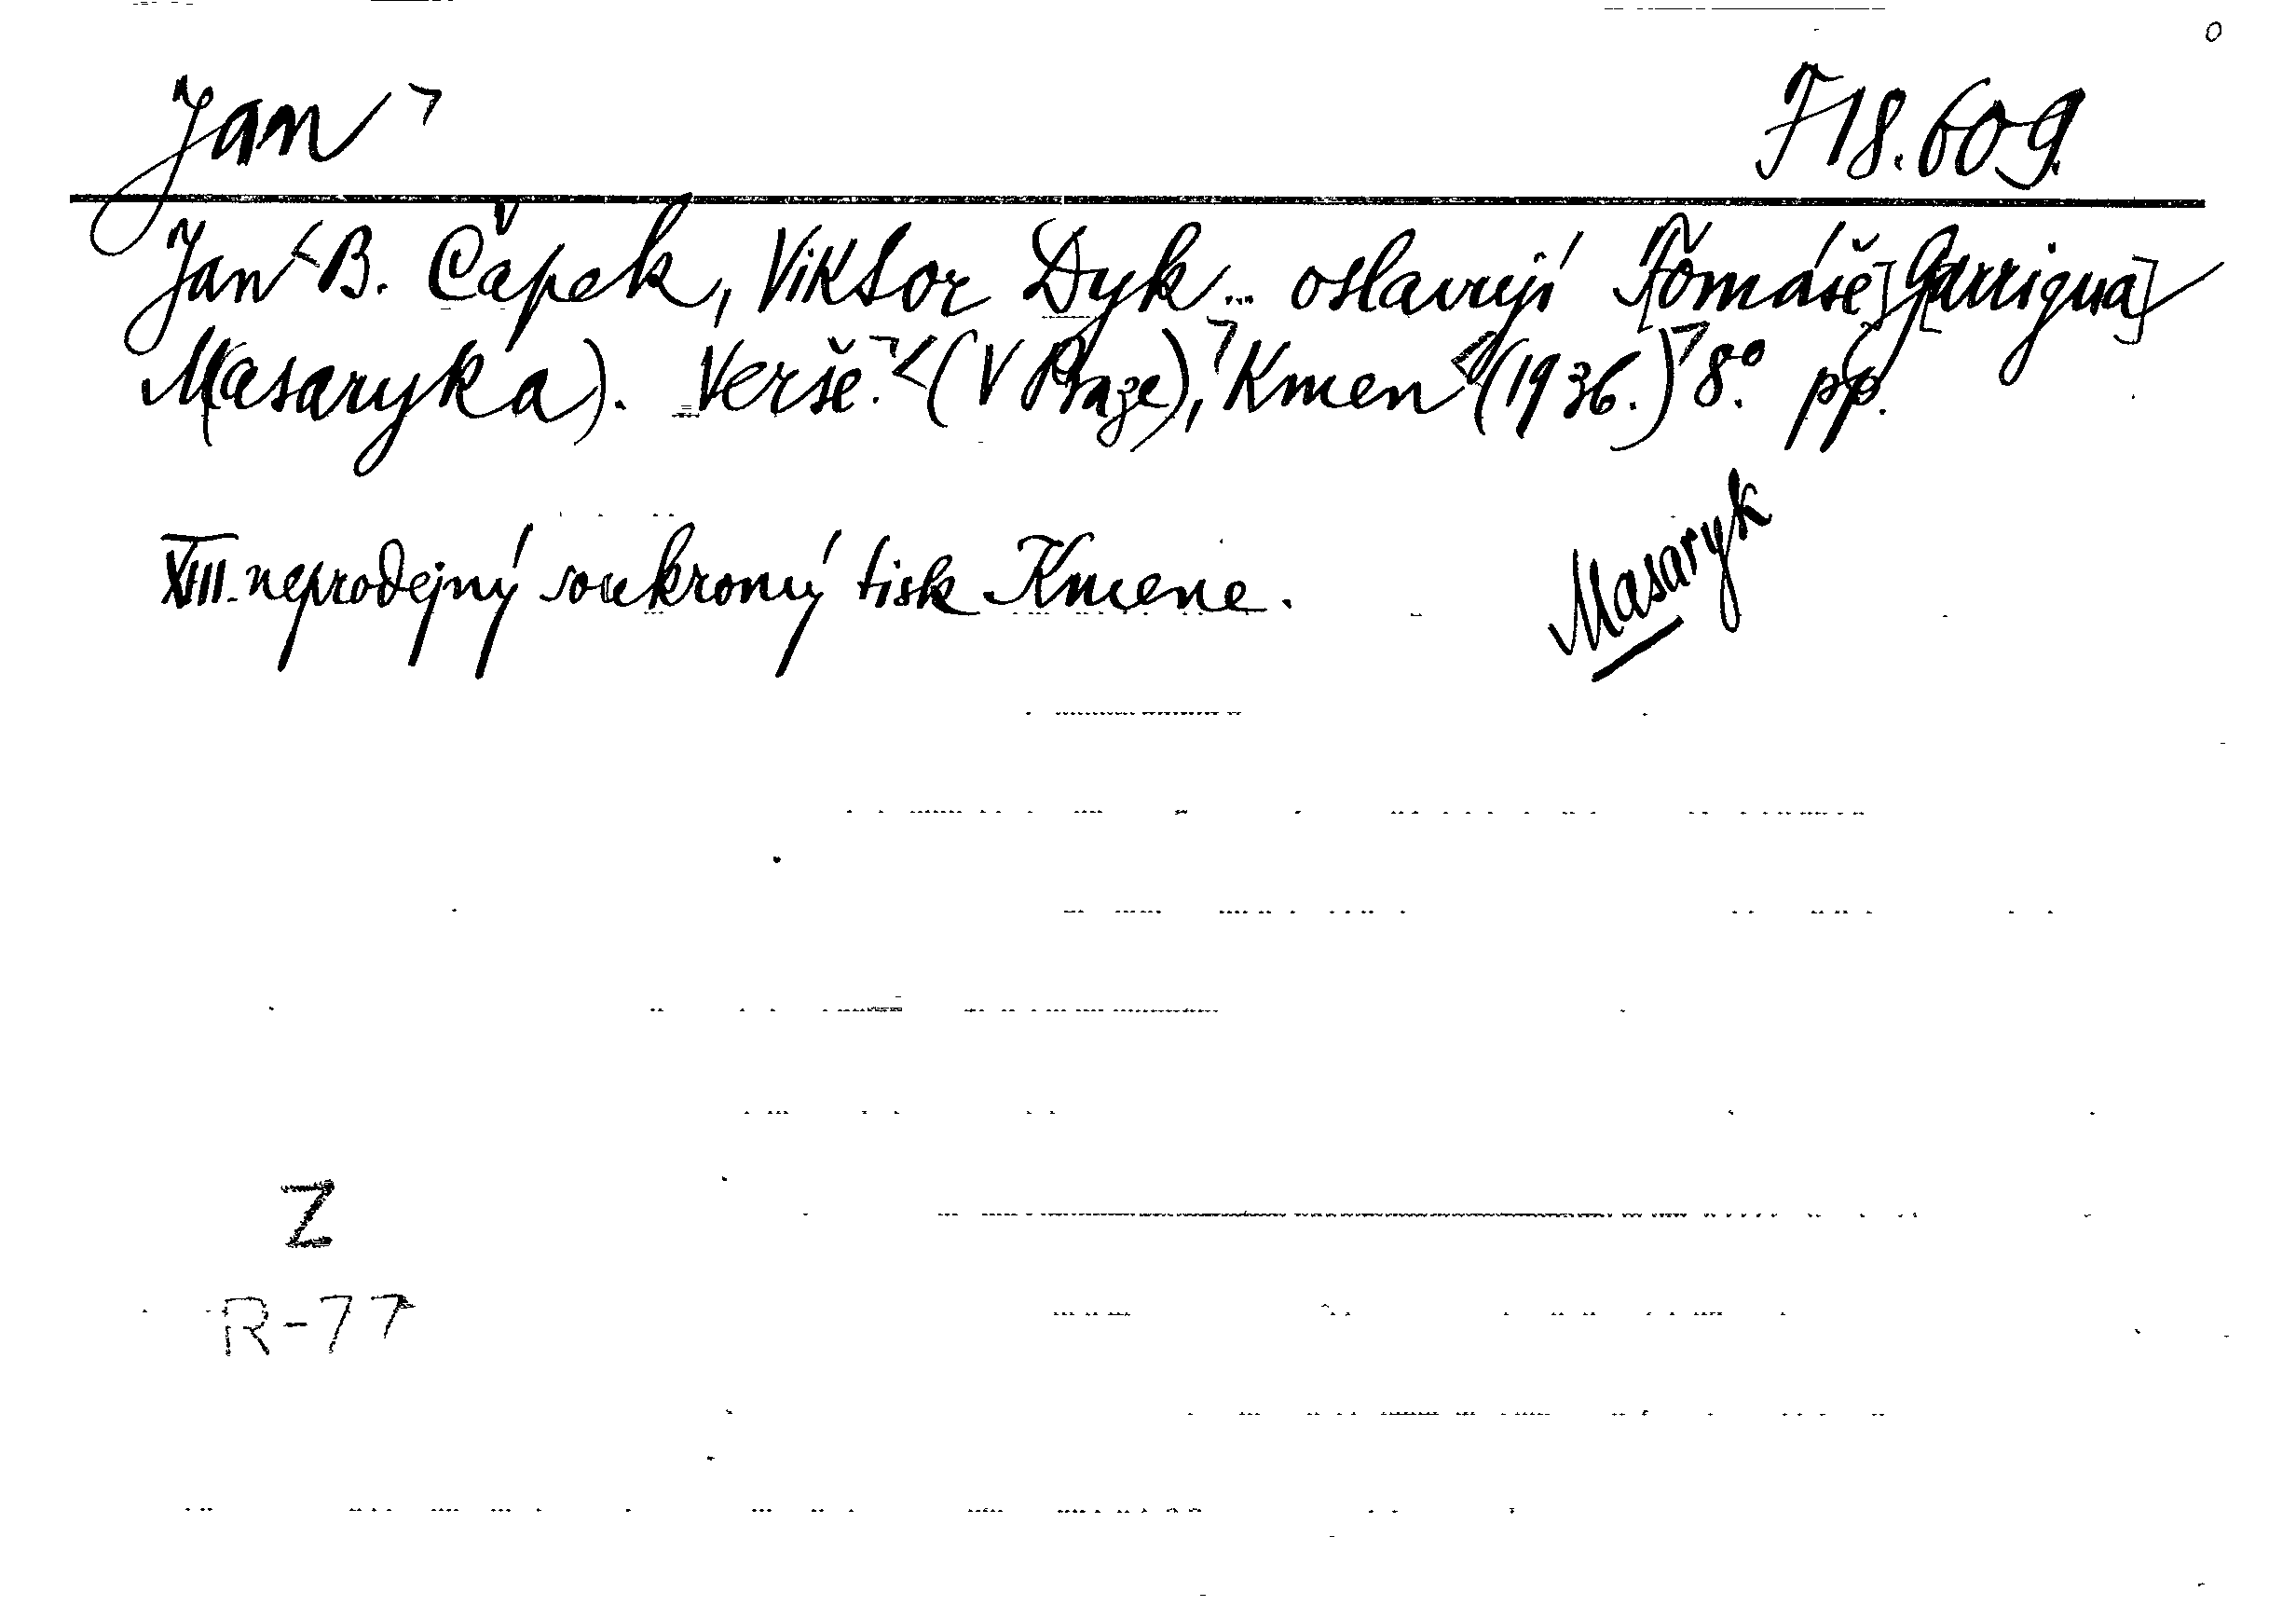 Jan F 18.609
Jan B. Čapek, Viktor Dyk... oslavují T[omáše] G[arrigua]
M(asaryka). Verše. (V Praze), Kmen (1936.) 8°. pp.
XVIII. neprodejný soukromý tisk Kmene.
Masaryk
Z
R-77